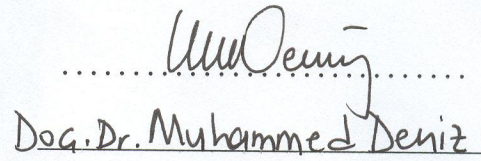 Doç.Dr. Muhammed Deniz